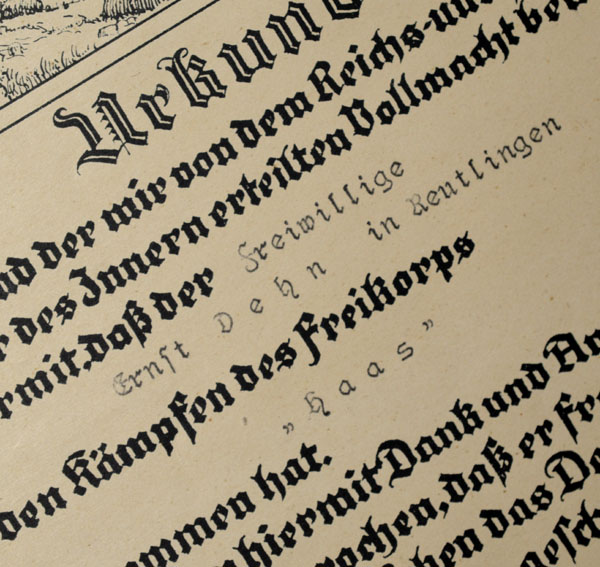 Urkun
nd der mir von dem Reichs- und
r des Innern erteilten Vollmacht be
rmit, daß der Freiwillige
Ernst Dehn in Reutlingen
den Kämpfen des Freikorps
„Haas”
ommen hat.
hiermit Dank und An
rochen, daß er fr
hen das De
gesch